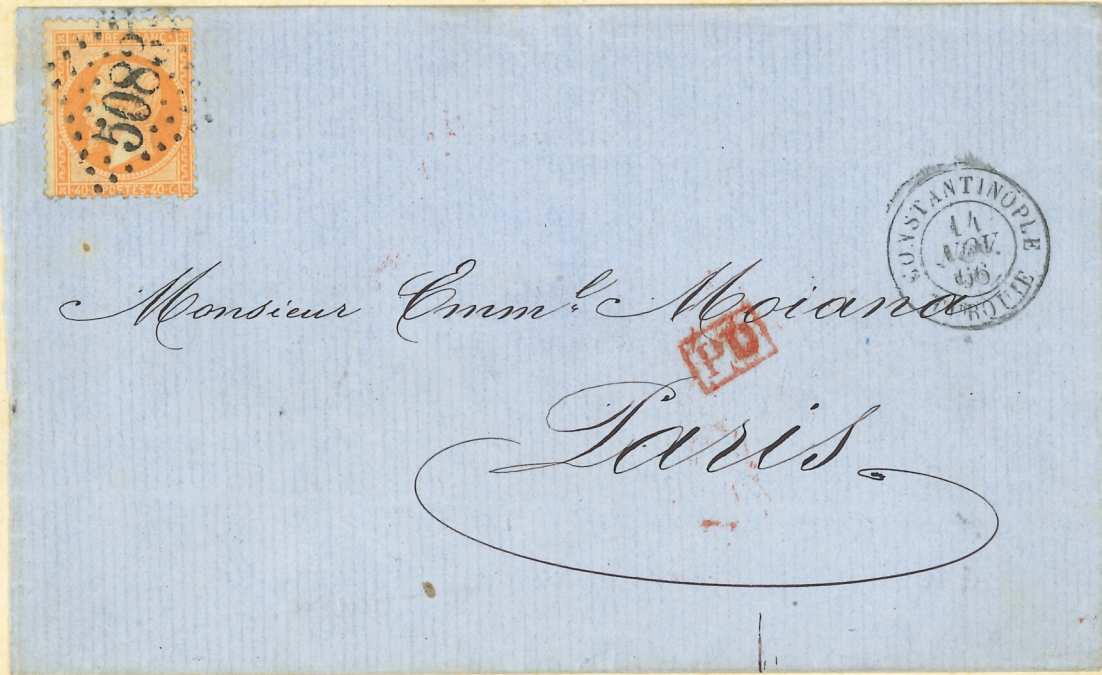 EMPIRE FRANC
5083
40 C POSTES 40 C
CONSTANTINOPLE
14
NOV.
66
TURQUIE
Monsieur Emm.l Moiana
PD
Paris